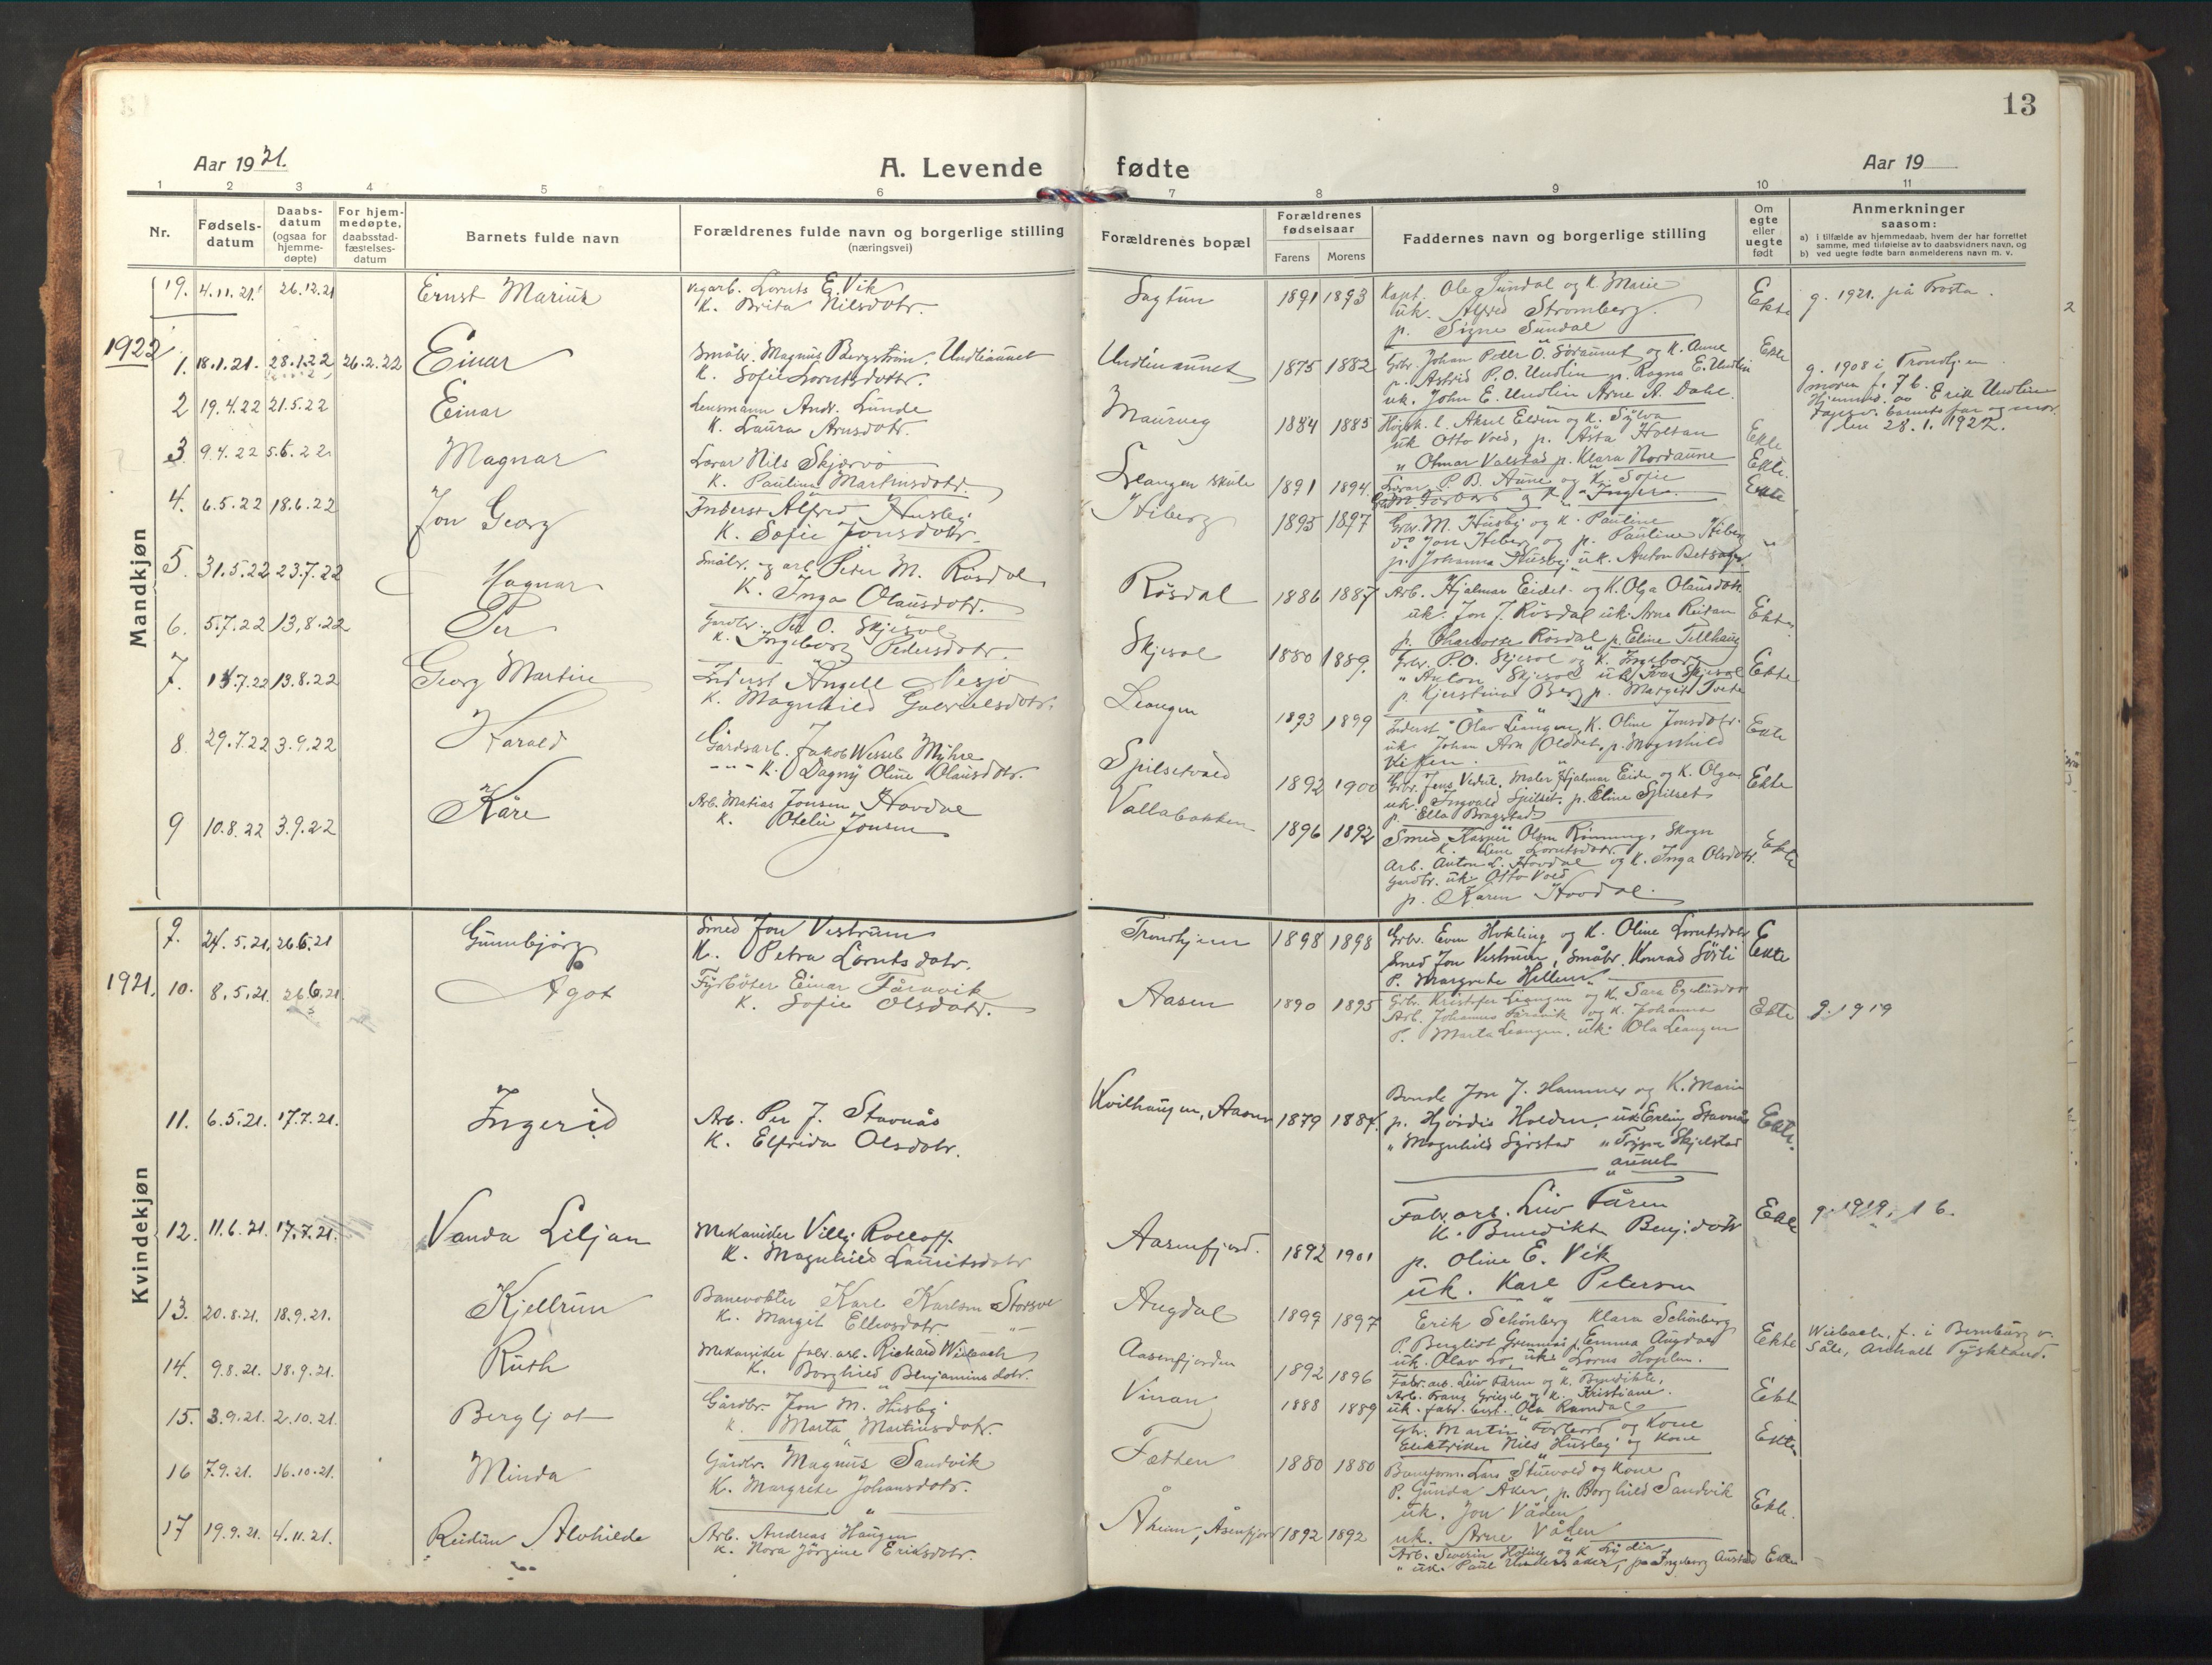 13
Aar 1921.
A. Levende fødte
Aar 19
1 2 3 4 5 6 7 8 9 10 11
Nr.
Fødsels-
datum
Daabs-
datum
(ogsaa for
hjemme-
døpte)
For hjem-
medøpte,
daabsstad-
fæstelses-
datum
Barnets fulde navn
Forældrenes fulde navn og borgerlige stilling
(næringsvei)
Forældrenes bopæl
Forældrenes
fødselsaar
Farens
Morens
Faddernes navn og borgerlige stilling
Om
egte
eller
uegte
født
Anmerkninger
saasom:
a) i tilfælde av hjemmedaab, hvem der har forrettet
samme, med tilføielse av to daabsvidners navn, og
b) ved uegte fødte barn anmelderens navn m. v.
Mandkjøn
19. 4.11.21. 26.12.21 Ernst Marius
Lornts E. Vik
K. Brita Nilsdotr.
Sagtun 1891 1893
Kapt. Ole Sundal og K. Marie
uk. Alfred Stromberg.
p. Signe Sundal
Ekte
g. 1921. på Frosta.
1922
1. 18.1.21. 28.1.22 26.2.22 Einar
Småbr. Magnus Bergström, Undliaunet
K. Sofie Lorntsdotr.
Undlinaunet 1875 1882
Grbr. Johan Peter O. Söraunet og K. Anne
p. Astrid P.O. Undlin p. Ragna E. Undlin
uk. John E. Undlin Arne A. Dahl.
Ekte
g. 1908 i Trondhjem
moren f. 76.
Hjemmed. av Erik Undlin
barnets far og mor
den 28.1.1922.
2 19.4.22 21.5.22 Einar
Lensmann Andr. Lunde
K. Laura Arnsdotr.
Maurveg 1884 1885
Høgsk. l. Aksel Eldin og K. Sylva
uk Otto Vold, p. Asta Holtan
" Otmar Valstad p. Klara Nordaune
Ekte
3 9.4.22 5.6.22 Magnar
Lærar Nils Skjærvö
K. Pauline Martinsdotr.
Leangen skule 1891 1894
Lærar P. B. Aune og K. Sofie
Ekte.
4. 6.5.22 18.6.22 Jon Georg
Inderst Alfred Husby
K. Sofie Jonsdotr.
Hiberg 1895 1897
Grbr. M. Husby og K. Pauline
do Jon Hiberg og p. Pauline Hiberg
p. Johanna Husby uk. Anton
5. 31.5.22 23.7.22 Hagnar
Småbr. og arb. Peder M. Rösdal
K. Inga Olausdotr.
Rösdal 1886 1887
Arb. Hjalmar Eidet og K. Olga Olausdotr.
uk. Jon J. Rösdal uk. Arne Reitan
p. Charlotte Rösdal p. Eline Tillhaug
Ekte
6. 5.7.22 13.8.22 Per
Gardbr. Per O. Skjesol
K. Ingeborg Pedersdotr.
Skjesol 1880 1889.
Grbr. P.O. Skjesol og K. Ingeborg
" Anton Skjesol uk. Ivar Skjesol
p. Kjerstina Berg p. Margit Tvete
Ekte
7. 14.7.22 13.8.22 Georg Martin
Inderst Angell Nesjö
K. Magnhild Gabrielsdotr.
Leangen 1893 1899
Inderst Olav Leangen, K. Oline Jonsdotr.
uk. Johan Arn p. Magnhild
Ekte
8. 29.7.22 3.9.22 Harald
Gårdsarb. Jakob Wessel Myhre
K. Dagny Oline Olausdotr.
Spilsetvald 1892 1900
Grbr. Jens Maler Hjalmar Eidet og K. Olga
uk. Ingvald Spilset. p. Eline Spilset
p. Ella Bragstad
Ekte
9 10.8.22 3.9.22 Kåre
Arb. Matias Jonsen Hovdal
K. Otelie Jonsen
Vallabakken 1896 1892
Smed Kasper Olsen Rönning, Skogn
K. Lorntsdotr.
Arb. Anton L. Hovdal og K. Inga Olsdotr.
Gardbr. uk. Otto Vold
p. Karen Hovdal.
Ekte
Kvindekjøn
9. 24.5.21. 26.6.21 Gunnbjörg
Smed Jon Vestrum
K. Petra Lorntsdotr.
Trondhjem 1898 1898
Grbr. Even Hokling og K. Oline Lorntsdotr.
Smed Jon Vestrum, småbr. Konrad Sörli
P. Margrete Hellem
Ekte
1921.
10. 8.5.21. 26.6.21. Agot
Fyrböter Einar Fåravik
K. Sofie Olsdotr.
Aasen 1890 1895
Grbr. Kristofer Leangen og K. Sara
Arb. Johannes Fåravik og K. Johanna
P. Marta Leangen. uk. Ola Leangen
Ekte g. 1919
11. 6.5.21. 17.7.21. Ingerid
Arb. Per J. Stavnås
K. Elfrida Olsdotr.
Kvilhaugen, Aasen 1879 1884.
Bonde Jon J. Hammer og K. Marie
p. Hjördis Holden, uk Erling Stavnås
" Magnhild Syrstad " Trygve Skjelstad
aunet
Ekte.
12. 11.6.21. 17.7.21. Vanda Liljan
Mekaniker Villy Rolloff.
K. Magnhild Lauritsdotr
Aasenfjord. 1892 1901
Fabr. arb. Leiv Fåren
K. Benedikte Benj.dotr
p. Oline E. Vik
uk. Karl Petersen
Ekte
13. 20.8.21. 18.9.21. Kjellrun
Banevokter Karl Karlsen Storsve
K. Margit Ellevsdotr.
Augdal 1899 1897
Erik Schönberg Klara Schönberg
P. Bergliot Grenness p. Emma Augdal
uk. Olav Lo, uk. Lorns Hoplen.
Ekte
14. 9.8.21. 18.9.21. Ruth
Mekaniker fabr. arb. Richard Wiebach
K. Borghild Benjaminsdotr.
Aasenfjorden 1892 1896
Fabr. arb. Leiv Fåren og K. Benedikte,
Arb. Franz og K. Kristiane.
uk. fabr. best. Ola Ramdal
Ekte
Wiebach, f. i Bernburg v.
Såle, Anhalt Tyskland.
15. 3.9.21. 2.10.21. Bergljot
Gårdbr. Jon M. Husby
K. Marta Martinusdotr.
Vinan 1888 1889
Gbr. Martin Forbord og Kone
Elektriker Nils Husby og Kone
Ekte
16 7.9.21. 16.10.21. Minda
Gårdbr. Magnus Sandvik
K. Margrete Johansdotr.
Fætten 1880 1880
Baneform. Lars Stuevold og Kone
P. Gunda Aker, p. Borghild Sandvik
uk. Jon Våden
uk. Arne Våden
Ekte.
17 19.9.21. 4.11.21. Reidun Alvhilde
Arb. Andreas Haugen
K. Nora Jörgine Eriksdotr.
Åheim, Åsenfjord 1892 1892
Arb. Severin og K. Lydia
" uk. Paul Undersåker, p. Ingeborg Aunstad
Ekte